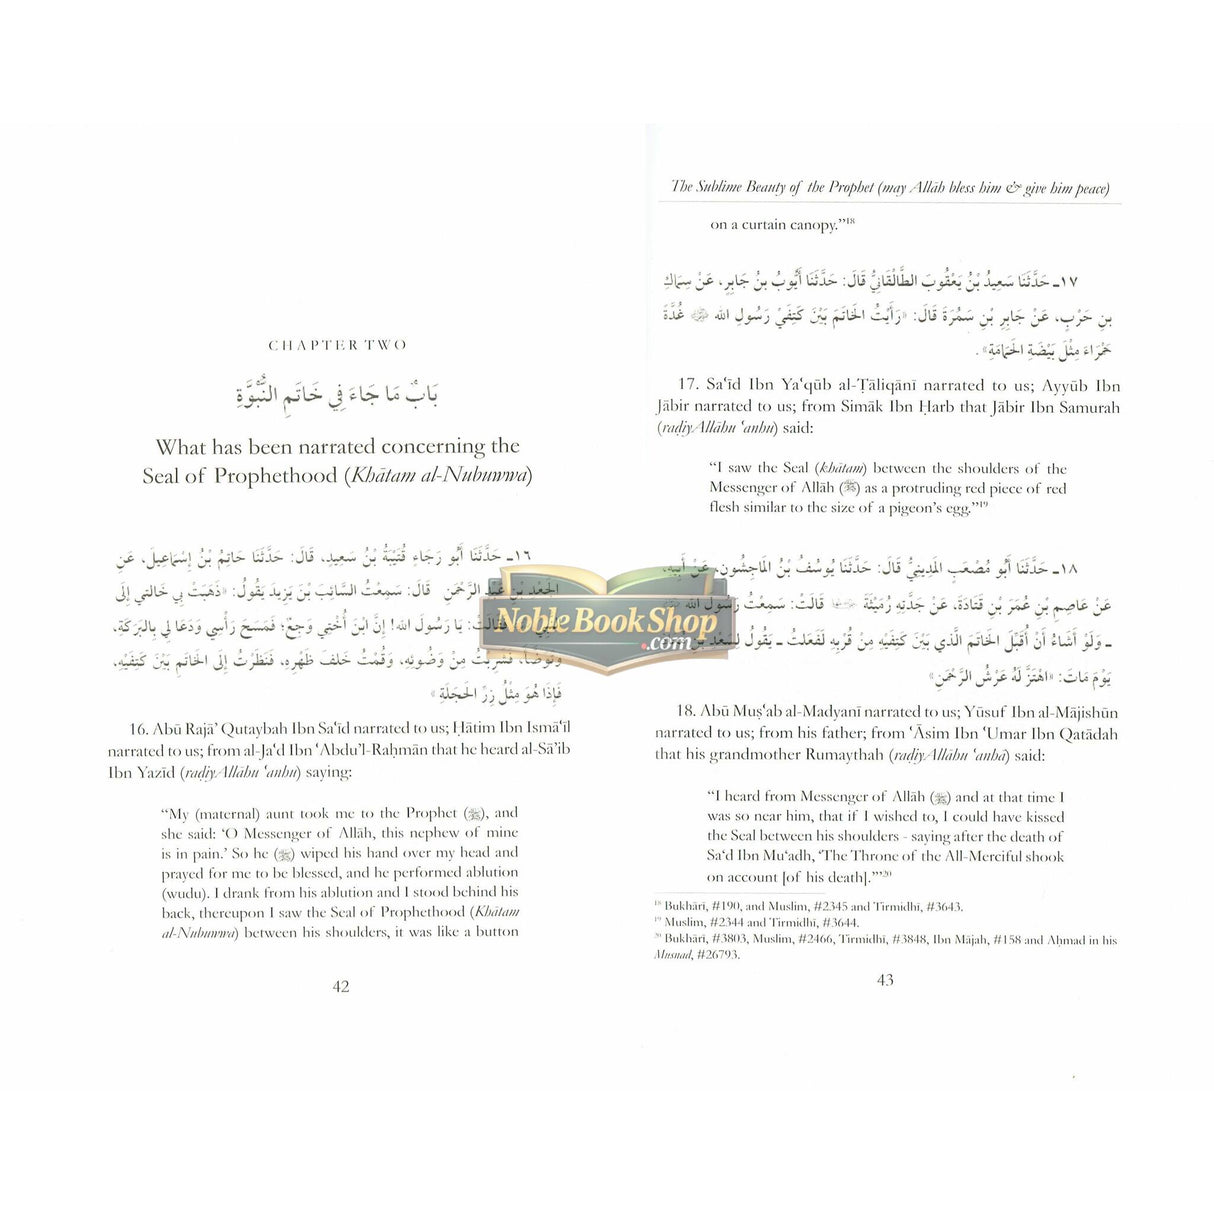 CHAPTER TWO
بَابُ مَا جَاءَ فِي خَاتَمِ النُّبُوَّةِ
What has been narrated concerning the
Seal of Prophethood (Khātam al-Nubuwwa)
١٦ـ حَدَّثَنَا أَبُو رَجَاءٍ قُتَيْبَةُ بْنُ سَعِيدٍ، قَالَ: حَدَّثَنَا حَاتِمُ بْنُ إِسْمَاعِيلَ، عَنِ
الجَعْدِ بْنِ عَبْدِ الرَّحْمَنِ قَالَ: سَمِعْتُ السَّائِبَ بْنَ يَزِيدَ يَقُولُ: «ذَهَبَتْ بِي خَالتِي إِلَى
النَّبِيِّ فَقَالَتْ: يَا رَسُولَ الله! إِنَّ ابْنَ أُخْتِي وَجِعٌ؛ فَمَسَحَ رَأْسِي وَدَعَا لِي بِالبَرَكَةِ،
وَتَوَضَّأَ، فَشَرِبْتُ مِنْ وَضُوئِهِ، وَقُمْتُ خَلفَ ظَهْرِهِ، فَنَظَرْتُ إِلَى الخَاتَمِ بَيْنَ كَتِفَيْهِ،
فَإِذَا هُوَ مِثْلُ زِرِّ الحَجَلَةِ»
16. Abū Rajā’ Qutaybah Ibn Sa‘īd narrated to us; Ḥātim Ibn Ismā‘īl
narrated to us; from al-Ja‘d Ibn ‘Abdu’l-Raḥmān that he heard al-Sā’ib
Ibn Yazīd (raḍiyAllāhu ‘anhu) saying:
“My (maternal) aunt took me to the Prophet (ﷺ), and
she said: ‘O Messenger of Allāh, this nephew of mine
is in pain.’ So he (ﷺ) wiped his hand over my head and
prayed for me to be blessed, and he performed ablution
(wudu). I drank from his ablution and I stood behind his
back, thereupon I saw the Seal of Prophethood (Khātam
al-Nubuwwa) between his shoulders, it was like a button
42
The Sublime Beauty of the Prophet (may Allāh bless him & give him peace)
on a curtain canopy.”18
١٧ـ حَدَّثَنَا سَعِيدُ بْنُ يَعْقُوبَ الطَّالْقَانِيُّ قَالَ: حَدَّثَنَا أَيُّوبُ بنُ جَابِرٍ، عَنْ سِمَاكِ
بنِ حَرْبٍ، عَنْ جَابِرِ بْنِ سَمُرَةَ قَالَ: «رَأَيْتُ الخَاتَمَ بَيْنَ كَتِفَيْ رَسُولِ الله ﷺ غُدَّةً
حَمْرَاءَ مِثْلَ بَيْضَةِ الحَمَامَةِ».
17. Sa‘īd Ibn Ya‘qūb al-Ṭāliqānī narrated to us; Ayyūb Ibn
Jābir narrated to us; from Simāk Ibn Ḥarb that Jābir Ibn Samurah
(raḍiyAllāhu ‘anhu) said:
“I saw the Seal (khātam) between the shoulders of the
Messenger of Allāh (ﷺ) as a protruding red piece of red
flesh similar to the size of a pigeon’s egg.”19
١٨ـ حَدَّثَنَا أَبُو مُصْعَبٍ المَدِينِيُّ قَالَ: حَدَّثَنَا يُوسُفُ بْنُ المَاجِشُونِ، عَنْ أَبِيهِ،
عَنْ عَاصِمِ بْنِ عُمَرَ بْنِ قَتَادَةَ، عَنْ جَدَّتِهِ رُمَيْثَةَ قَالَتْ: سَمِعْتُ رَسُولَ الله
ـ وَلَوْ أَشَاءُ أَنْ أُقَبِّلَ الخَاتَمَ الَّذِي بَيْنَ كَتِفَيْهِ مِنْ قُرْبِهِ لَفَعَلتُ ـ يَقُولُ لِسَعْدِ بْنِ
يَوْمَ مَاتَ: «اهْتَزَّ لَهُ عَرْشُ الرَّحْمَنِ»
18. Abū Muṣ‘ab al-Madyanī narrated to us; Yūsuf Ibn al-Mājishūn
narrated to us; from his father; from ‘Āsim Ibn ‘Umar Ibn Qatādah
that his grandmother Rumaythah (raḍiyAllāhu ‘anhā) said:
“I heard from Messenger of Allāh (ﷺ) and at that time I
was so near him, that if I wished to, I could have kissed
the Seal between his shoulders - saying after the death of
Sa‘d Ibn Mu‘adh, ‘The Throne of the All-Merciful shook
on account [of his death].’”20
18 Bukhārī, #190, and Muslim, #2345 and Tirmidhī, #3643.
19 Muslim, #2344 and Tirmidhī, #3644.
20 Bukhārī, #3803, Muslim, #2466, Tirmidhī, #3848, Ibn Mājah, #158 and Aḥmad in his
Musnad, #26793.
43
Noble Book Shop
.com